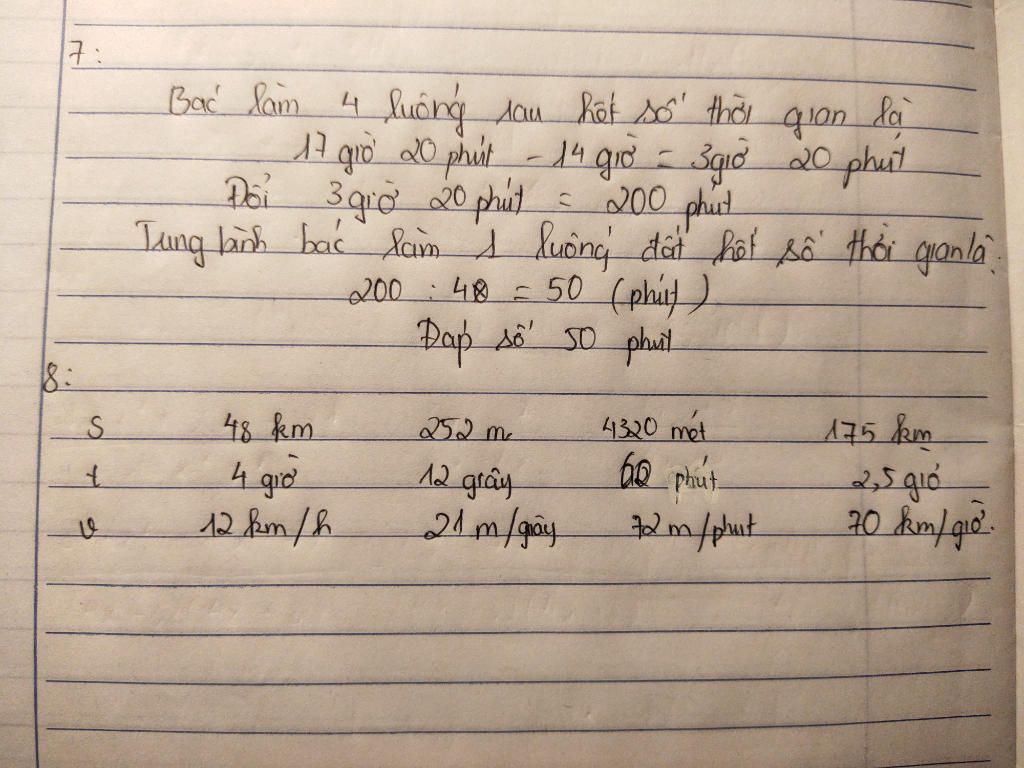 7:
Bác làm 4 luống sau hết số thời gian là
17 giờ 20 phút - 14 giờ = 3giờ 20 phút
Đổi 3giờ 20 phút = 200 phút
Tung bành bác làm 1 luống đất hết số thời gian là:
200 : 4 = 50 (phút)
Đáp số 50 phút
8:
s 48 km 252 m 4320 mét 175 km
t 4 giờ 12 giây 60 phút 2,5 giờ
v 12 km/h 21 m/giây 72 m/phút 70 km/giờ.